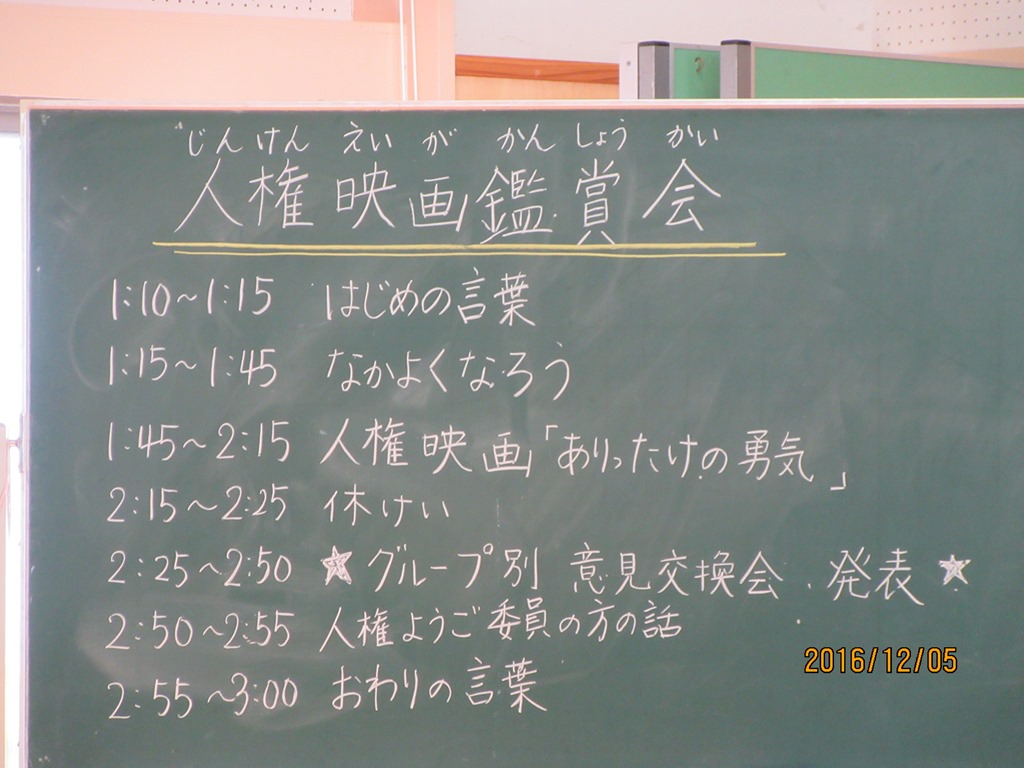 じんけん えいが かんしょう かい
人権映画鑑賞会
1:10～1:15 はじめの言葉
1:15～1:45 なかよくなろう
1:45～2:15 人権映画「ありったけの勇気」
2:15～2:25 休けい
2:25～2:50 ☆グループ別 意見交換会・発表☆
2:50～2:55 人権ようご委員の方の話
2:55～3:00 おわりの言葉
2016/12/05